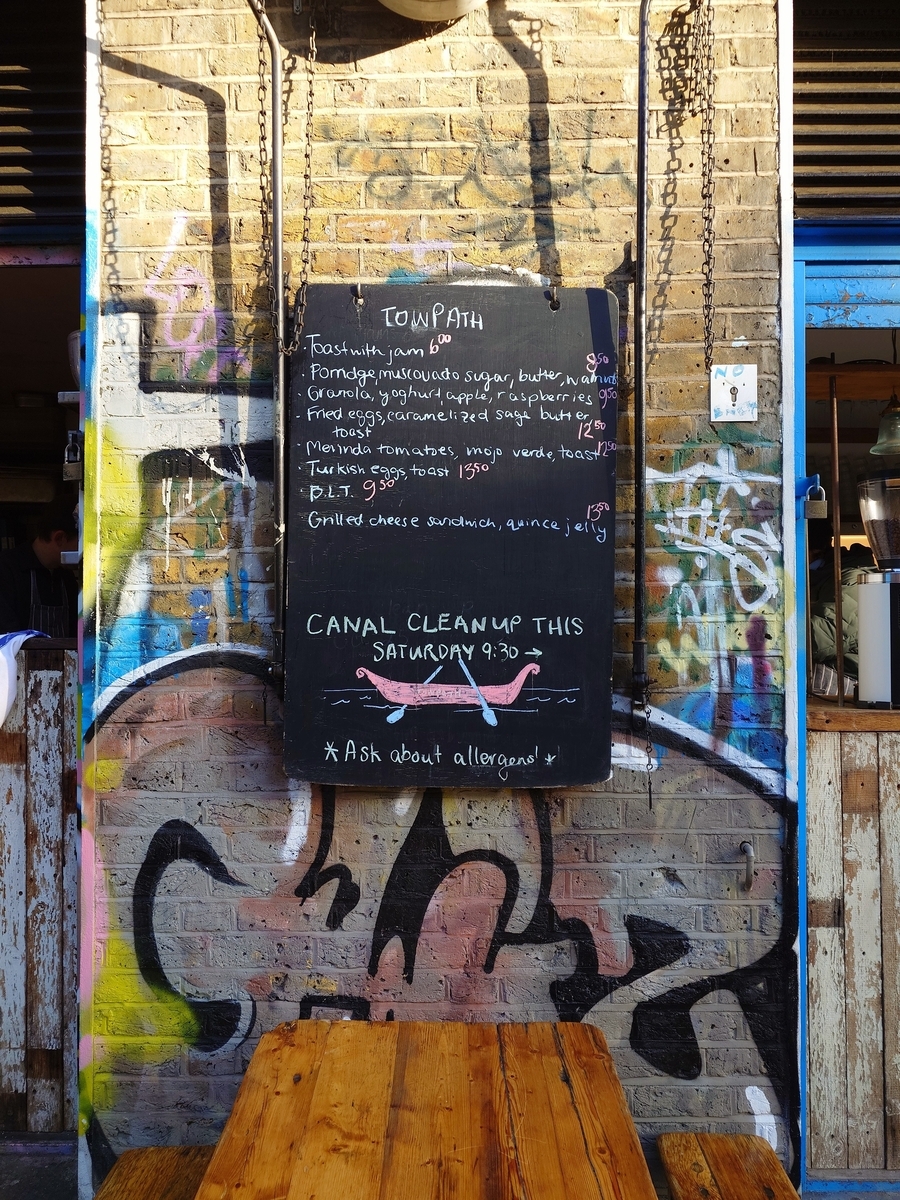 TOWPATH
· Toast with jam 6⁰⁰
8⁵⁰
· Porridge, muscovado sugar, butter, walnuts
· Granola, yoghurt, apple, raspberries 9⁵⁰
· Fried eggs, caramelized sage butter,
toast 12⁵⁰
· Merinda tomatoes, mojo verde, toast 12⁵⁰
· Turkish eggs, toast 13⁵⁰
· B.L.T. 9⁵⁰
13⁵⁰
· Grilled cheese sandwich, quince jelly
CANAL CLEAN UP THIS
SATURDAY 9:30 →
TOWPATH
*Ask about allergens! *
NO